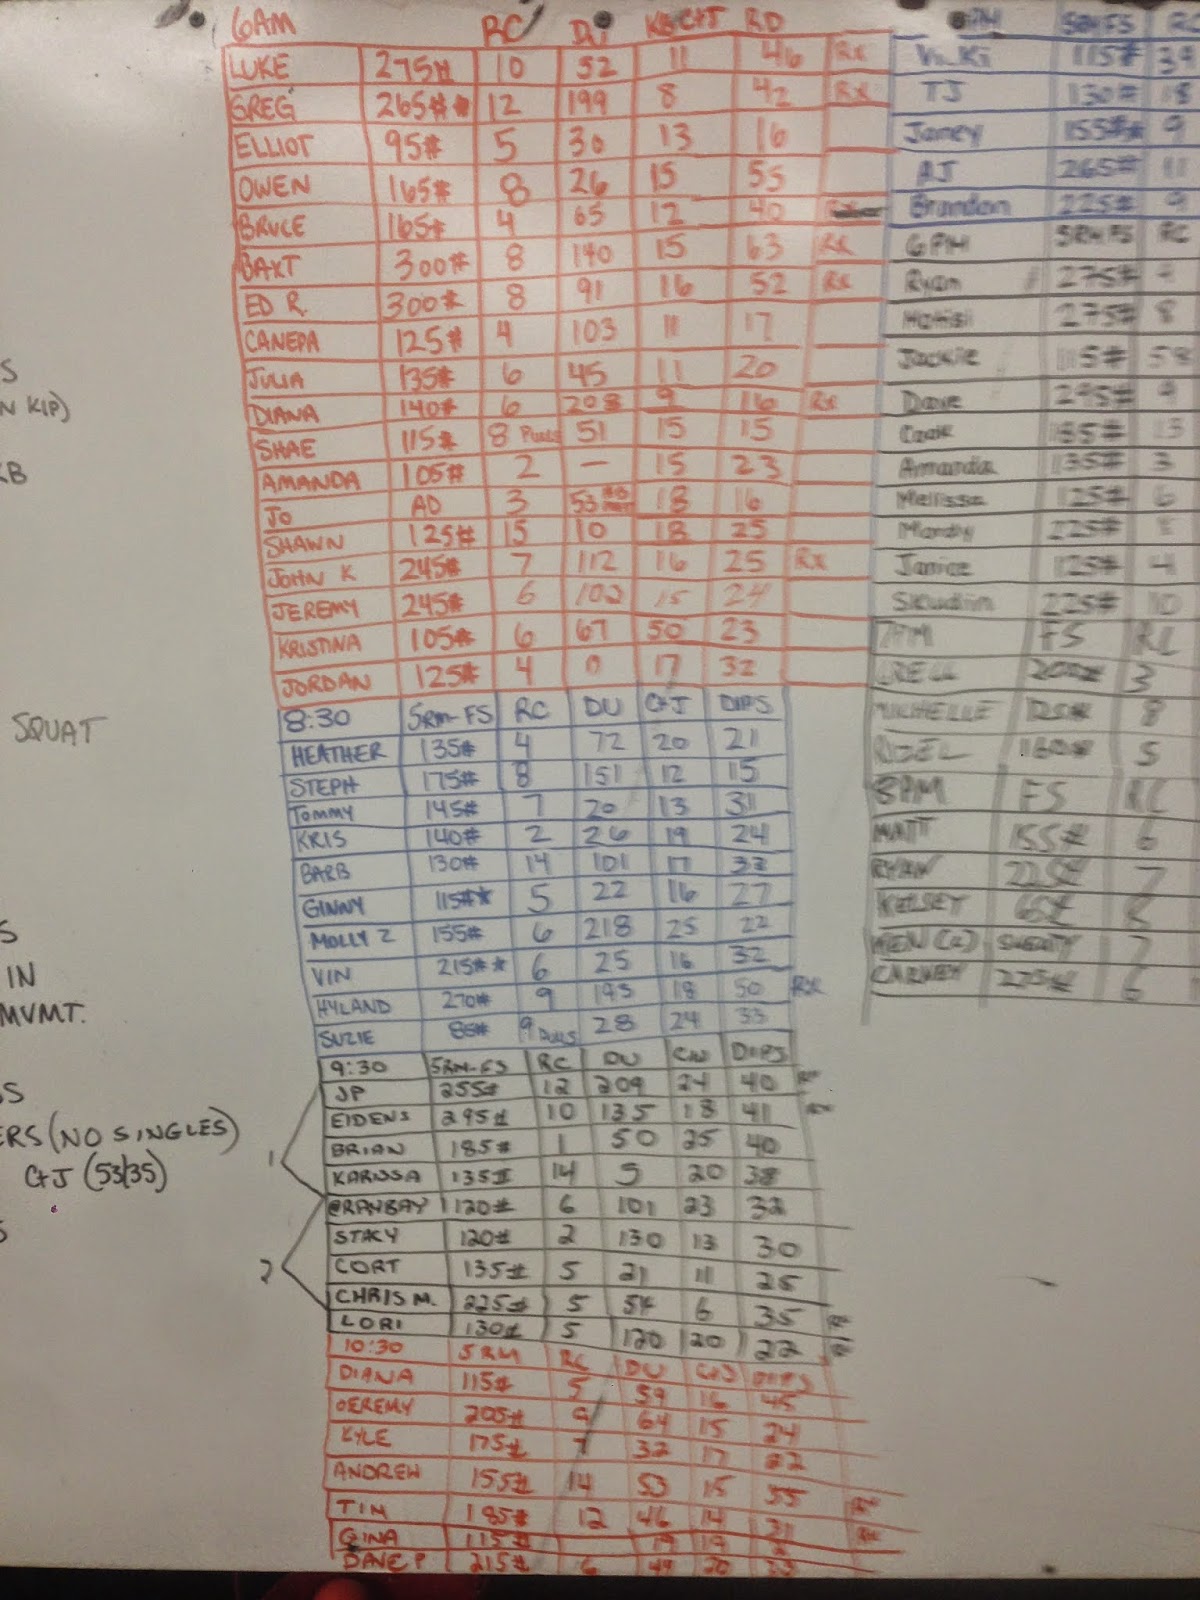 S
N KIP)
RB
SQUAT
S
IN
MVMT.
SS
ERS (NO SINGLES)
C+J (53/35)
S
1
2
6AM RC DU KB C+J RD
LUKE 275# 10 52 11 46 Rx
GREG 265# 12 199 8 42 Rx
ELLIOT 95# 5 30 13 16
OWEN 165# 8 26 15 55
BRUCE 165# 4 65 12 40
BART 300# 8 140 15 63 Rx
ED R. 300# 8 91 16 52 Rx
CANEPA 125# 4 103 11 17
JULIA 135# 6 45 11 20
DIANA 140# 6 208 9 16 Rx
SHAE 115# 8 PULLS 51 15 15
AMANDA 105# 2 — 15 23
JO AD 3 53 18 16
SHAWN 125# 15 10 18 25
JOHN K 245# 7 112 16 25 Rx
JEREMY 245# 6 102 15 24
KRISTINA 105# 6 67 50 23
JORDAN 125# 4 0 17 32
8:30 5RM-FS RC DU C+J DIPS
HEATHER 135# 4 72 20 21
STEPH 175# 8 151 12 15
TOMMY 145# 7 20 13 31
KRIS 140# 2 26 19 24
BARB 130# 14 101 17 33
GINNY 115#* 5 22 16 27
MOLLY Z 155# 6 218 25 22
VIN 215#* 6 25 16 32
HYLAND 270# 9 193 18 50 RX
SUZIE 9 PULLS 28 24 33
9:30 5RM-FS RC DU C+J DIPS
JP 255# 12 209 24 40
EIDENS 295# 10 135 18 41
BRIAN 185# 1 50 25 40
KARISSA 135# 14 5 20 38
120# 6 101 23 32
STACY 120# 2 130 13 30
CORT 135# 5 21 11 25
CHRIS M. 225# 5 54 6 35
LORI 130# 5 120 20 22
10:30 5RM RC DU C+J DIPS
DIANA 115# 5 59 16 45
JEREMY 205# 9 64 15 24
KYLE 175# 7 32 17 22
ANDREW 155# 14 53 15 55
TIM 185# 12 46 14
GINA 115# 19 19
DANE P 215# 6 49 20
PM 5RM FS RC
Vicki 115# 39
TJ 130# 18
Janey 155# 9
AJ 265# 11
Brandon 225# 9
6PM 5RM FS RC
Ryan 275#
275# 8
Jackie 115# 58
Dave 295# 9
185# 13
Amanda 135# 3
Melissa 125# 6
Mandy 225# 8
Janice 125# 4
225# 10
7PM FS RC
3
MICHELLE 125# 8
160# 5
8PM FS RC
MATT 155# 6
RYAN 225# 7
KELSEY 65#
7
275# 6